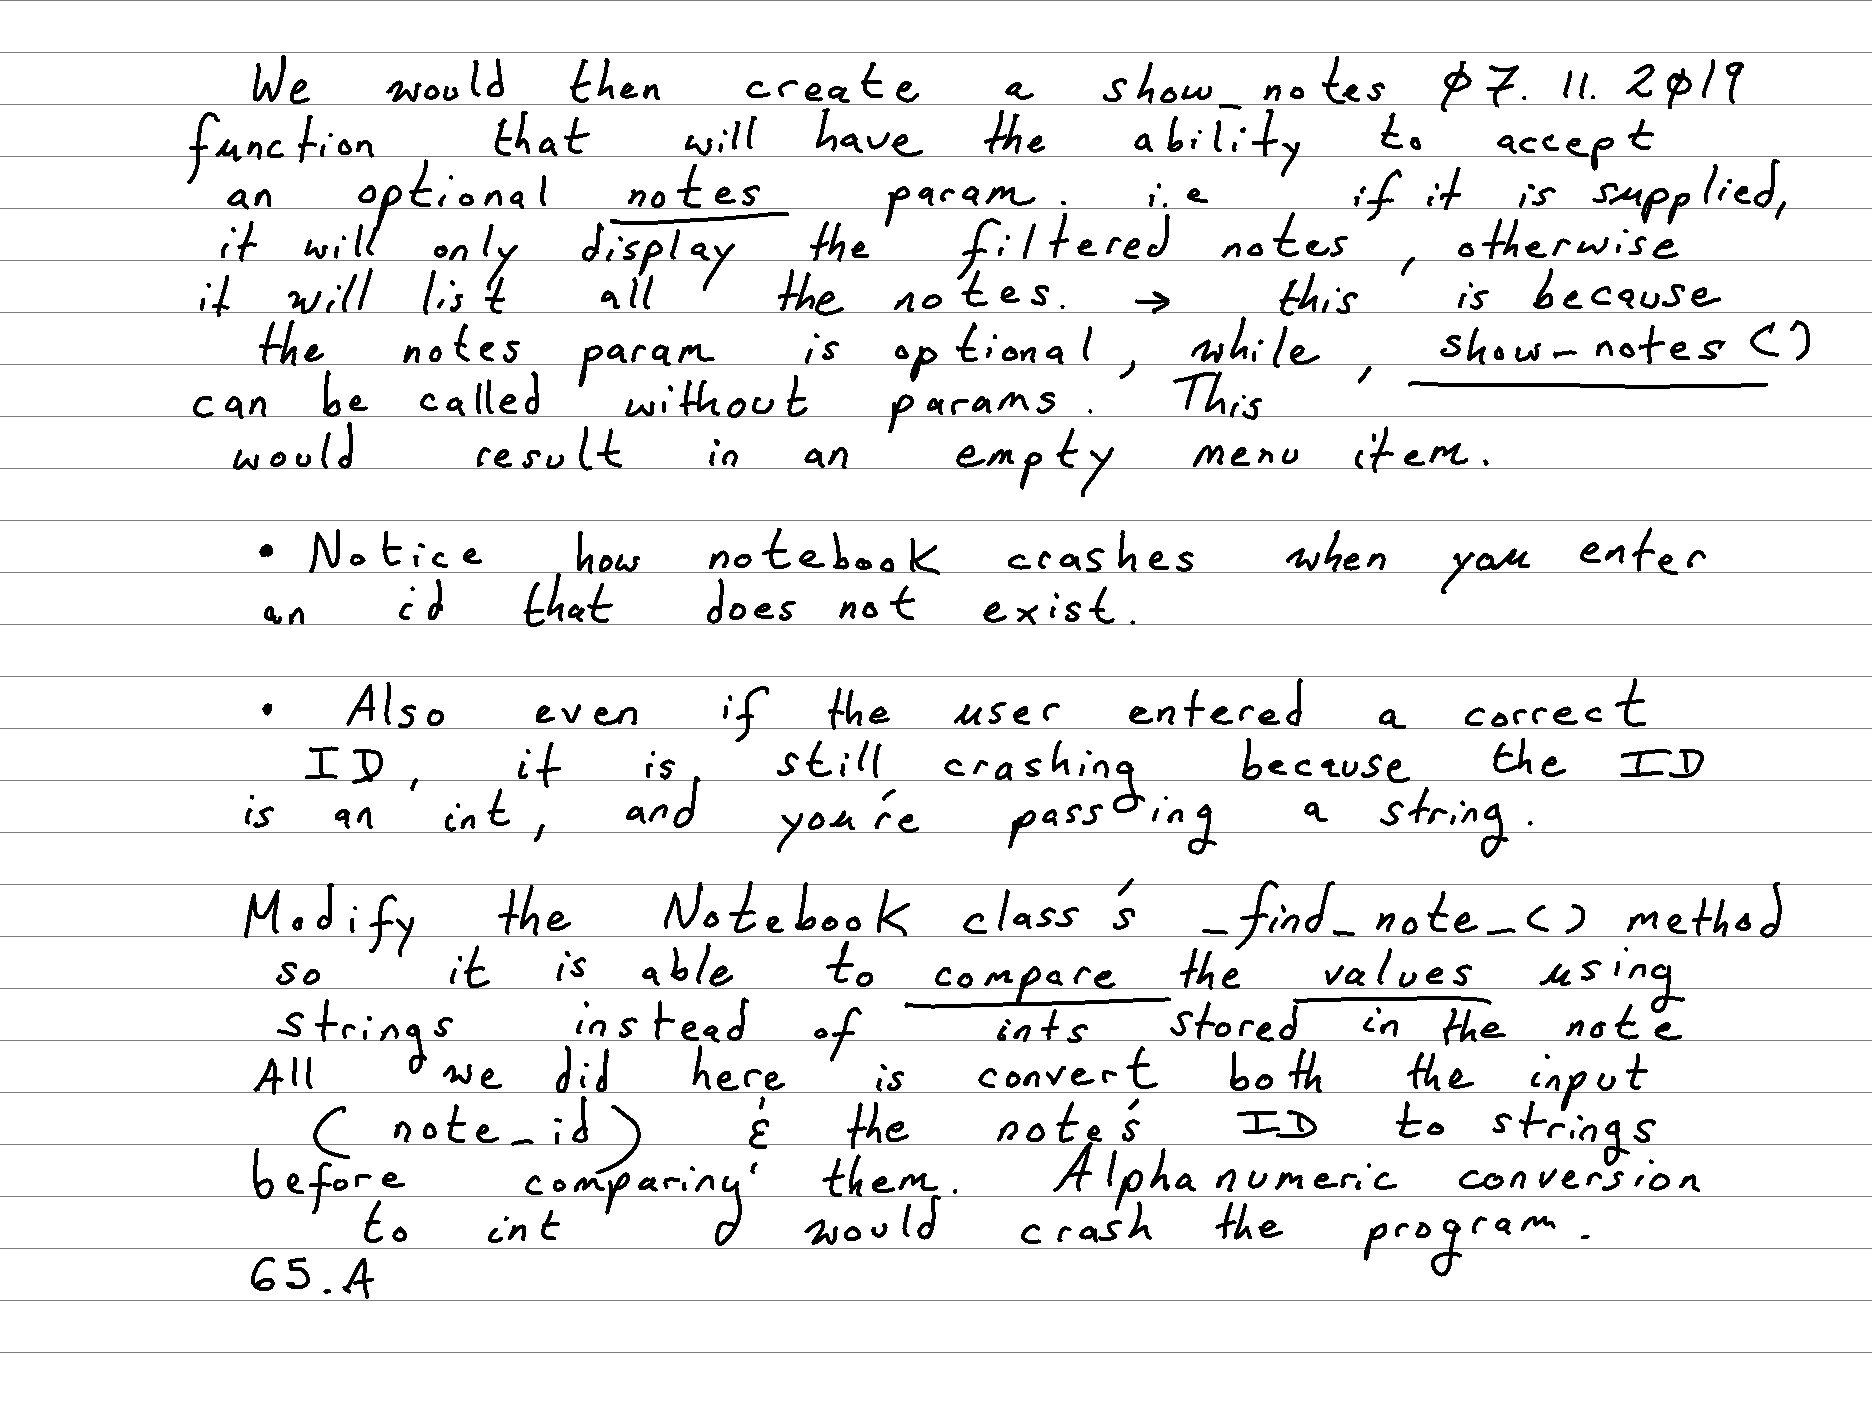 We would then create a show_notes 07.11.2019
function that will have the ability to accept
an optional notes param. i.e if it is supplied,
it will only display the filtered notes, otherwise
it will list all the notes. → this is because
the notes param is optional, while, show_notes()
can be called without params. This
would result in an empty menu item.
• Notice how notebook crashes when you enter
an id that does not exist.
• Also even if the user entered a correct
ID, it is still crashing because the ID
is an int, and you're passing a string.
Modify the Notebook class's _find_note_() method
so it is able to compare the values using
strings instead of ints stored in the note
All we did here is convert both the input
(note_id) & the note's ID to strings
before comparing them. Alphanumeric conversion
to int would crash the program.
65.A